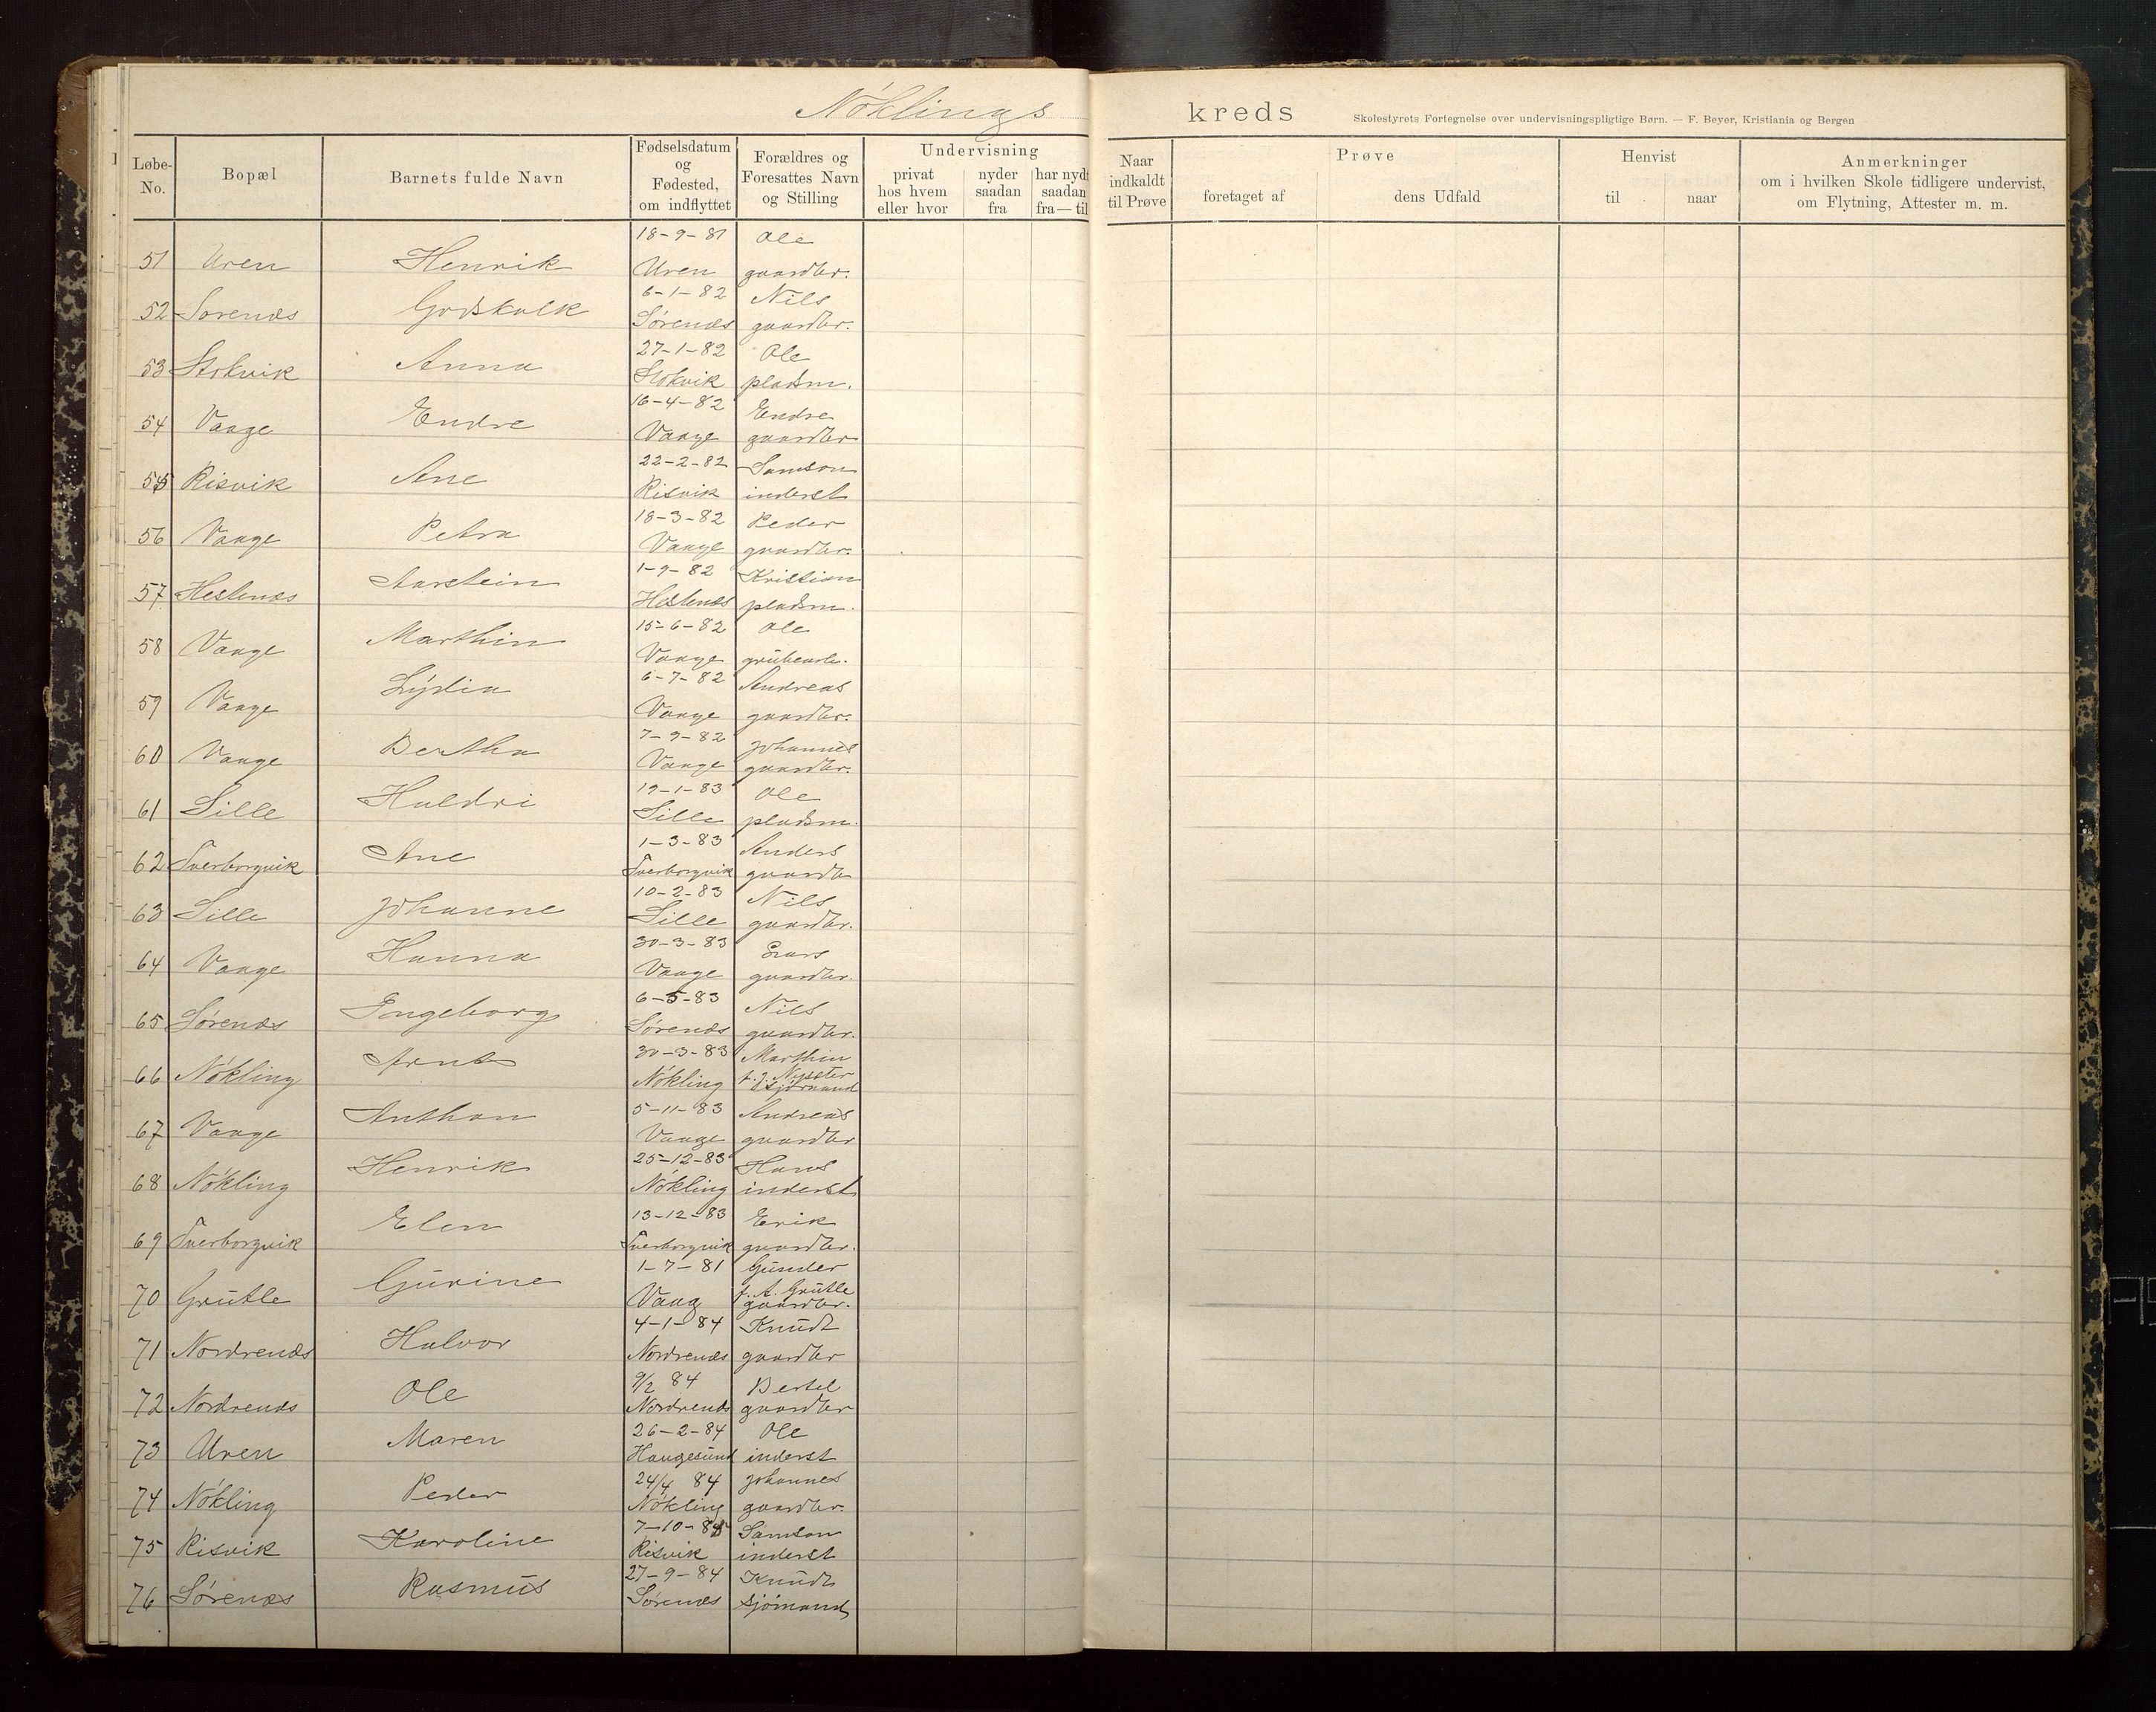 Nöklings kreds
Skolestyrets Fortegnelse over undervisningspligtige Børn. — F. Beyer, Kristiania og Bergen
Løbe-No. Bopæl Barnets fulde Navn Fødselsdatum og Fødested, om indflyttet Forældres og Foresattes Navn og Stilling Undervisning privat hos hvem eller hvor nyder saadan fra har nydt saadan fra — til
Naar indkaldt til Prøve Prøve foretaget af dens Udfald Henvist til naar Anmerkninger om i hvilken Skole tidligere undervist, om Flytning, Attester m. m.
18-9-81 Ole
51 Uren Henrik Uren gaardbr.
6-1-82 Nils
52 Sørenæs Godskalk Sørenæs gaardbr.
27-1-82 Ole
53 Stokvik Anna Stokvik pladsm.
16-4-82 Endre
54 Vaage Endre Vaage gaardbr
22-2-82 Samson
55 Risvik Ane Risvik inderst
18-3-82 Peder
56 Vaage Petra Vaage gaardbr.
1-9-82 Kristian
57 Hestenæs Aarstein Hestenæs pladsm.
15-6-82 Ole
58 Vaage Marthin Vaage grubearb.
6-7-82 Andreas
59 Vaage Lydia Vaage gaardbr.
7-9-82 Johannes
60 Vaage Bertha Vaage gaardbr.
19-1-83 Ole
61 Lille Huldri Lille pladsm.
1-3-83 Anders
62 Tverborgvik Ane Tverborgvik gaardb
10-2-83 Nils
63 Lille Johanne Lille gaardbr.
30-3-83 Lars
64 Vaage Hanna Vaage gaardbr.
6-5-83 Nils
65 Sørenæs Ingeborg Sørenæs gaardbr.
30-3-83 Marthin
66 Nökling Arnt Nökling f. J. Nysæter sjømand
5-11-83 Andreas
67 Vaage Anthon Vaage gaardbr
25-12-83 Hans
68 Nökling Henrik Nökling inderst
13-12-83 Erik
69 Tverborgvik Elen Tverborgvik gaardbr.
1-7-81 Gunder
70 Grutle Gurine Vaag f. A. Grutle gaardbr.
4-1-84 Knudt
71 Nordrenæs Halvor Nordrenæs gaardbr
9/2 84 Bertel
72 Nordrenæs Ole Nordrenæs gaardbr
26-2-84 Ole
73 Uren Maren Haugesund inderst
24/4 84 Johannes
74 Nökling Peder Nökling gaardbr.
7-10-84 Samson
75 Risvik Karoline Risvik inderst
27-9-84 Knudt
76 Sørenæs Rasmus Sørenæs sjömand